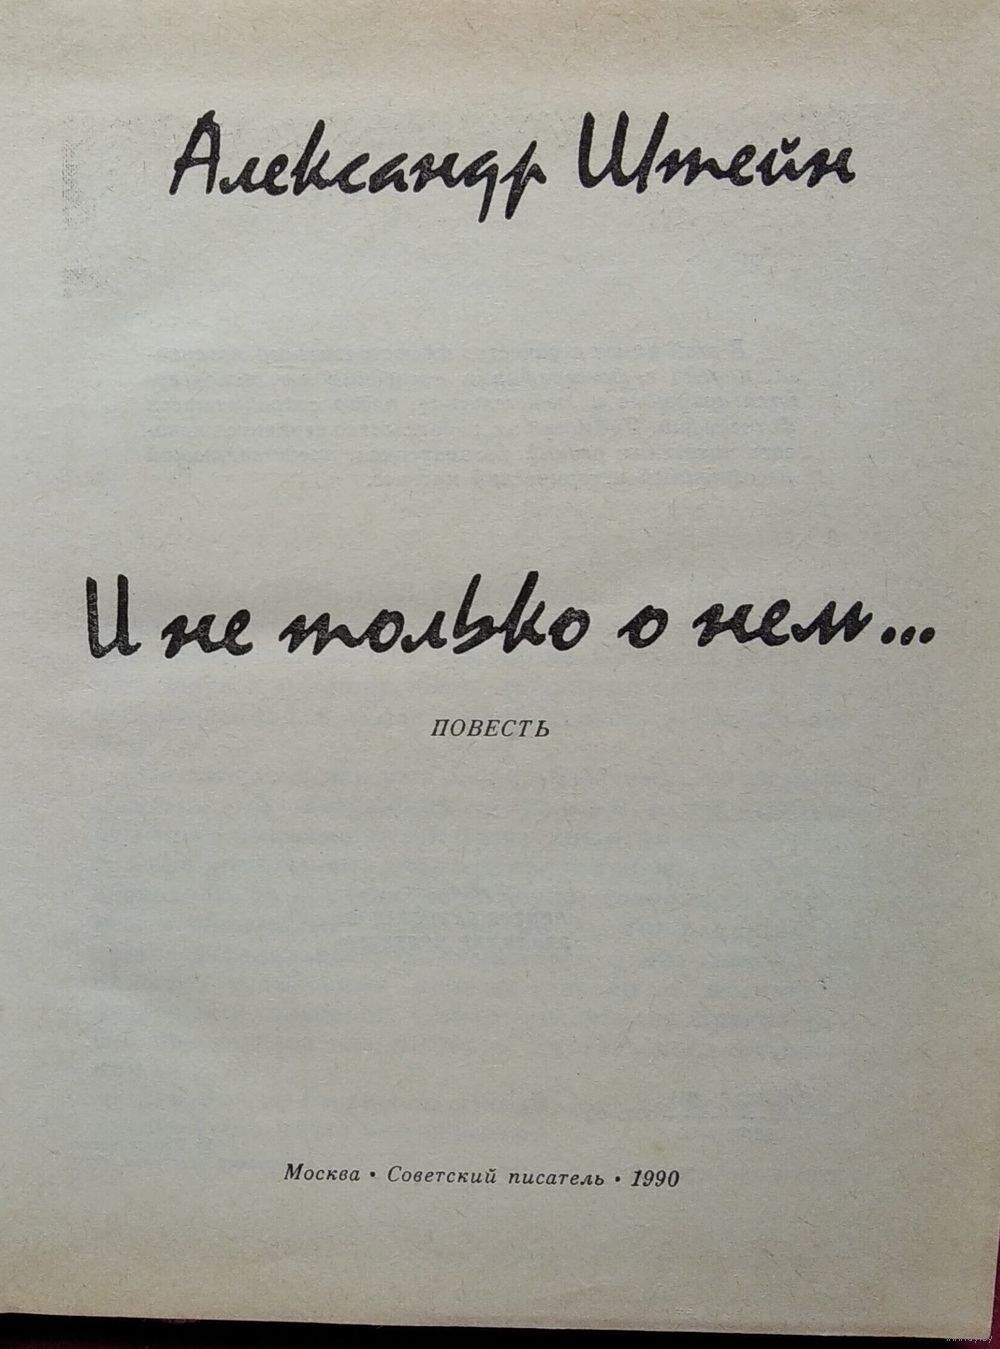 Александр Штейн
И не только о нем...
ПОВЕСТЬ
Москва • Советский писатель • 1990